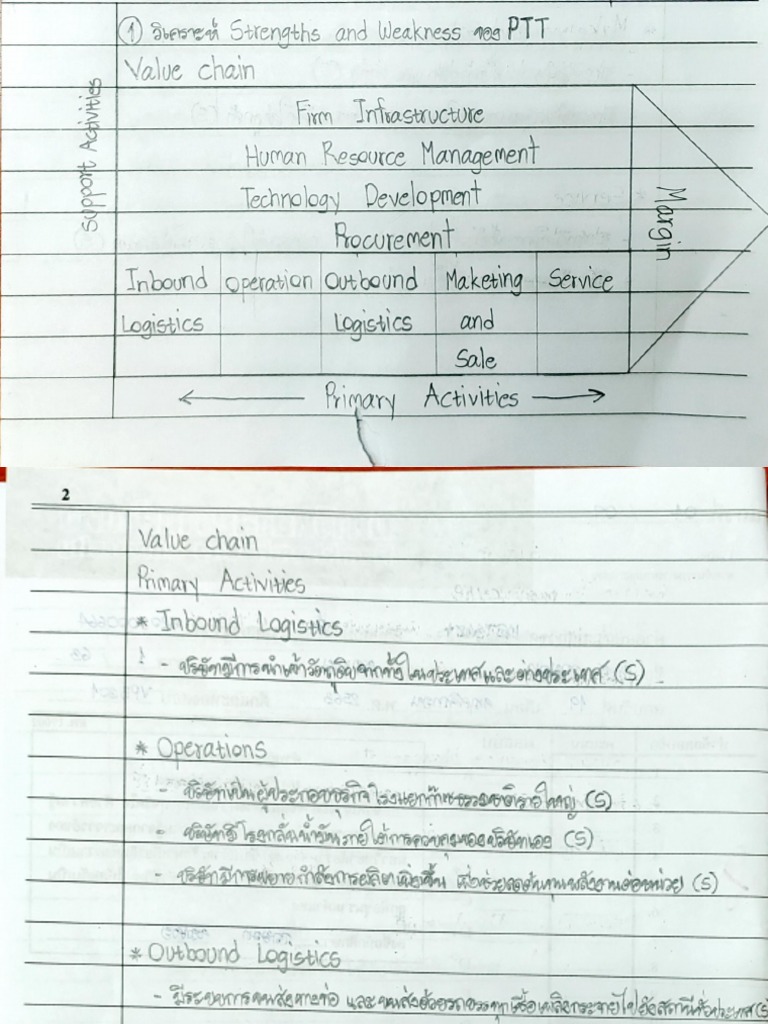 ① วิเคราะห์ Strengths and Weakness ของ PTT
Value chain
Support Activities
Firm Infrastructure
Human Resource Management
Technology Development
Procurement
Margin
Inbound Operation Outbound Maketing Service
Logistics Logistics and
Sale
Primary Activities
2
Value chain
Primary Activities
* Inbound Logistics
- บริษัทมีการนำเข้าวัตถุดิบจากทั้งในประเทศและต่างประเทศ (S)
* Operations
- บริษัทเป็นผู้ประกอบธุรกิจโรงแยกก๊าซธรรมชาติรายใหญ่ (S)
- บริษัทมีโรงกลั่นน้ำมันภายใต้การควบคุมของบริษัทเอง (S)
- บริษัทมีการขยายกำลังการผลิตเพิ่มขึ้น เพื่อช่วยลดต้นทุนพลังงานต่อหน่วย (S)
* Outbound Logistics
- มีระบบการขนส่งทางท่อ และขนส่งด้วยรถบรรทุกเชื้อเพลิงกระจายไปยังสถานีทั่วประเทศ (S)